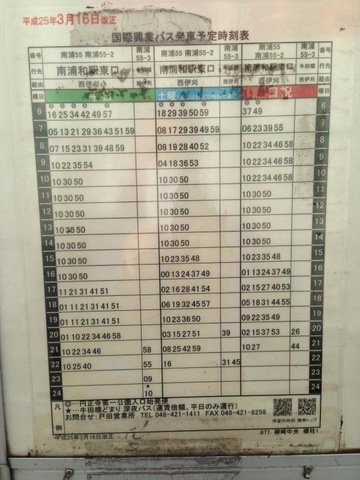 平成25年3月16日改正
国際興業バス発車予定時刻表
番号 南浦55 南浦55-2 南浦55 南浦55-2 南浦55 南浦55-2
行先 南浦和駅東口 南浦和駅東口 南浦和駅東口
経由 西伊刈 西伊刈 西伊刈
曜日 土曜
6 16 25 34 42 49 57 18 29 39 50 59 37 49
7 05 13 21 29 36 43 51 59 08 17 29 39 49 59 06 23 39 55
8 07 15 23 31 39 48 59 08 19 28 40 52 10 22 34 46 58
9 10 22 35 54 04 18 36 53 10 22 34 46 58
10 10 30 50 10 30 50 10 22 34 46 58
11 10 30 50 10 30 50 10 30 50
12 10 30 50 10 30 50 10 30 50
13 10 30 50 10 30 50 10 30 50
14 10 30 50 10 30 50 10 30 50
15 10 30 50 10 30 50 10 30 50
16 10 30 50 00 13 24 37 49 01 13 24 37 49
17 11 21 31 41 51 01 11 21 31 41 51 01 13 24 37 49
18 01 11 21 31 41 51 02 16 29 41 54 09 21 33 44 57
19 01 11 21 31 41 51 02 16 29 41 54 09 21 33 44 57
20 01 11 21 31 41 51 03 15 27 51 39 02 15 37 53 26
21 10 22 34 46 58 08 25 42 59 10 27 44
22 10 25 40 55 16 31 45
23 09
24 10
凡例
◎…円正寺第一公園入口始発便
★…牛田橋どまり 深夜バス(運賃倍額、平日のみ運行)
お問合せ:戸田営業所 TEL 048-421-1411 FAX 048-421-9258
平成25年3月16日改正